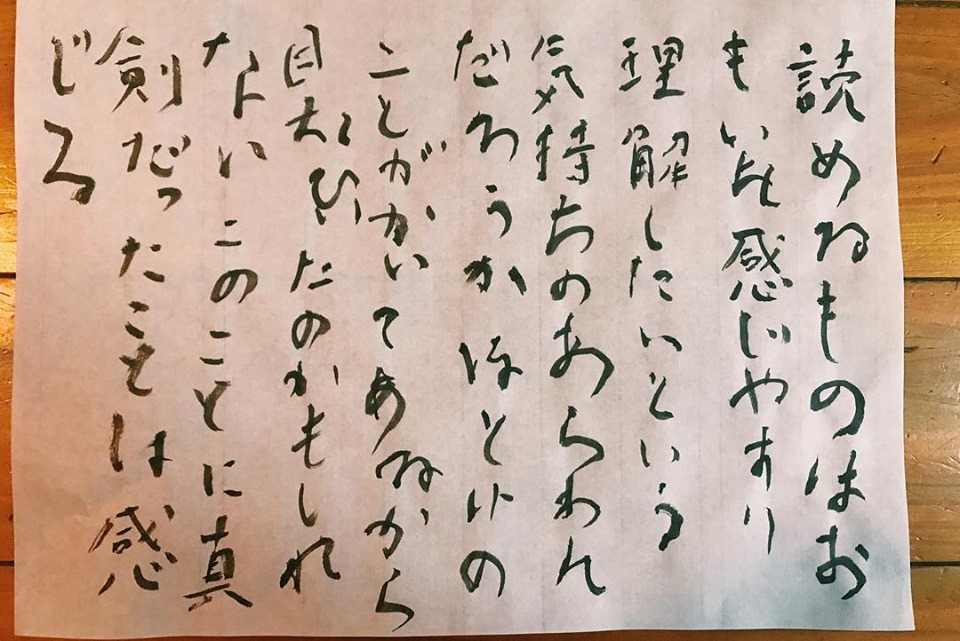 読めぬものはお
もい感じやすり
理解したいという
気持ちのあらわれ
だろうかほとけの
ことがかいてあぬから
たのかもしれ
ないこのことに真
剣だったことは感
じる